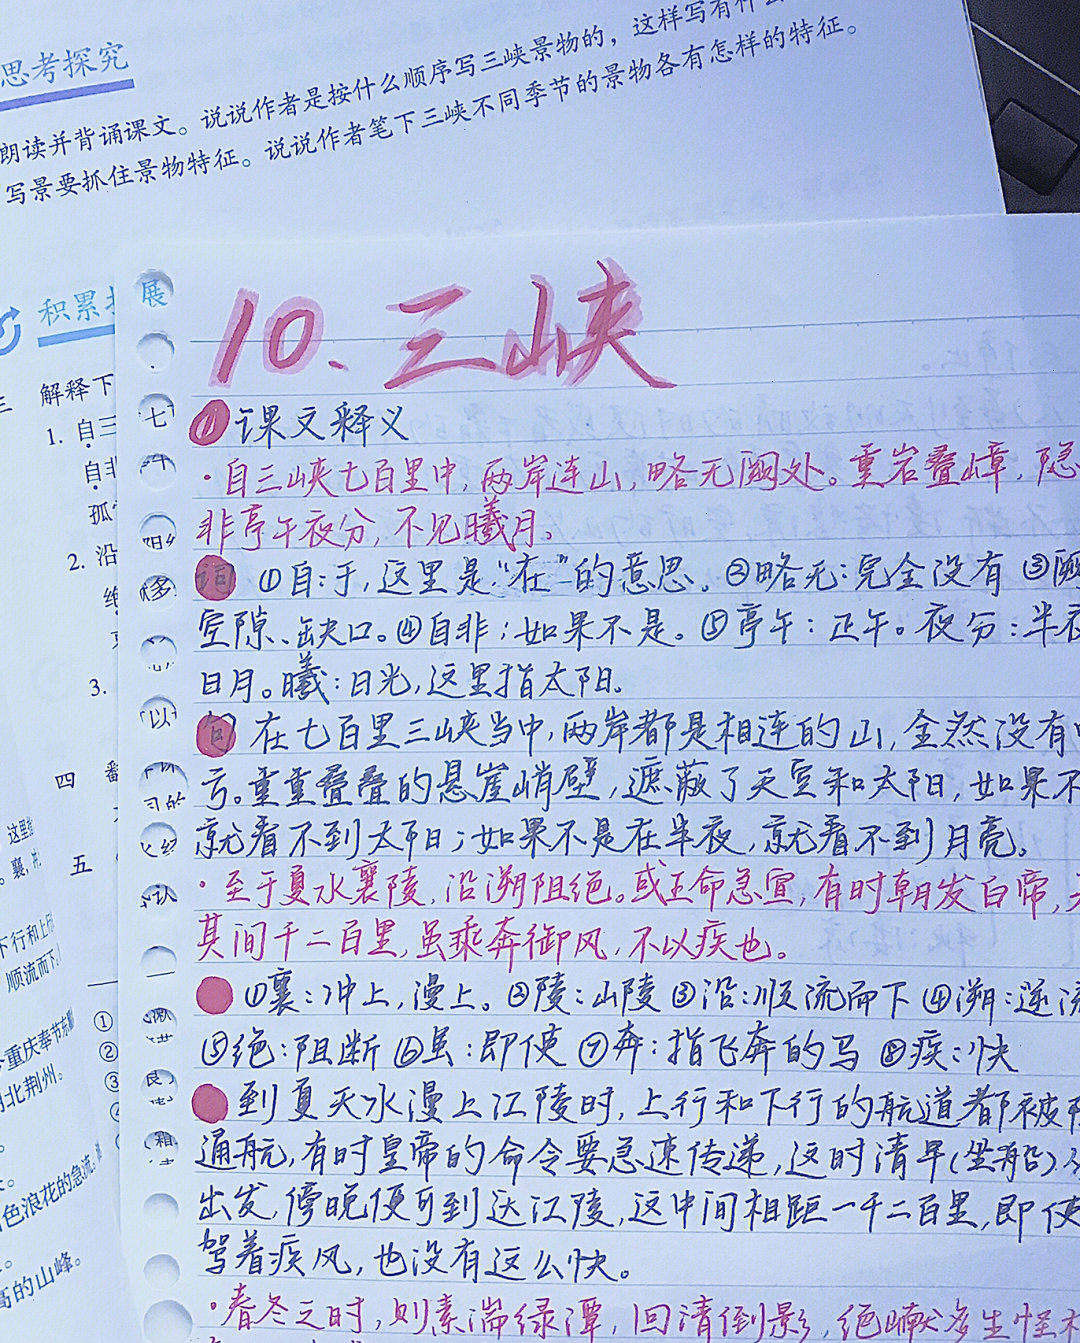 思考探究
朗读并背诵课文。说说作者是按什么顺序写三峡景物的，这样写有什么
写景要抓住景物特征。说说作者笔下三峡不同季节的景物各有怎样的特征。
积累
三 解释下
1. 自三
自非
孤
2. 沿
绝
3.
四 翻
五
这里
。襄，
下行和上行
顺流而下
重庆奉节东
北荆州。
色浪花的急流。
高的山峰。
①
②
③
④
展
七
多
以
的
认
一
箱
10、三峡
(1) 课文释义
·自三峡七百里中，两岸连山，略无阙处。重岩叠嶂，隐
非亭午夜分，不见曦月。
词 ①自：于，这里是“在”的意思。②略无：完全没有 ③阙
空隙、缺口。④自非：如果不是。⑤亭午：正午。夜分：半夜
日月。曦：日光，这里指太阳。
句 在七百里三峡当中，两岸都是相连的山，全然没有中
亏。重重叠叠的悬崖峭壁，遮蔽了天空和太阳，如果不
就看不到太阳；如果不是在半夜，就看不到月亮。
·至于夏水襄陵，沿溯阻绝。或王命急宣，有时朝发白帝，
其间千二百里，虽乘奔御风，不以疾也。
①襄：冲上，漫上。②陵：山陵 ③沿：顺流而下 ④溯：逆流
⑤绝：阻断 ⑥虽：即使 ⑦奔：指飞奔的马 ⑧疾：快
到夏天水漫上江陵时，上行和下行的航道都被阻
通航，有时皇帝的命令要急速传递，这时清早（坐船）从
出发，傍晚便可到达江陵，这中间相距一千二百里，即使
驾着疾风，也没有这么快。
·春冬之时，则素湍绿潭，回清倒影，绝巘多生怪柏